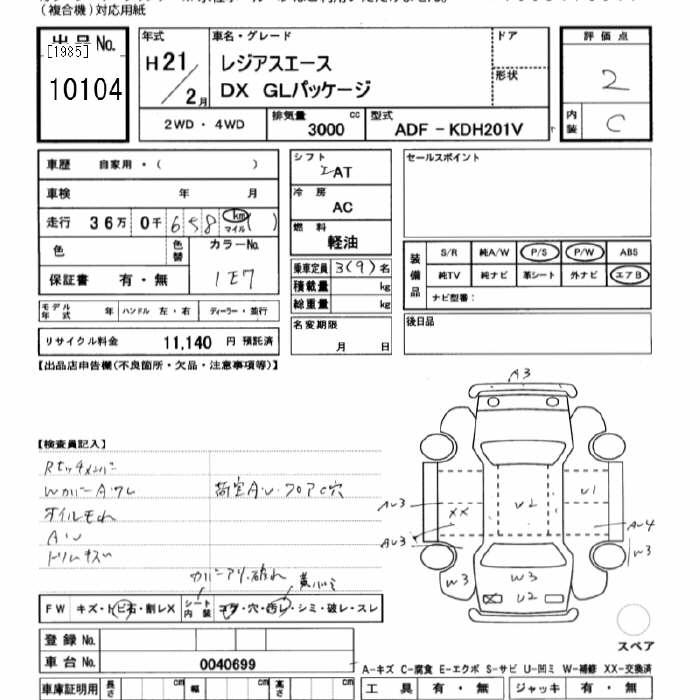 (複合機)対応用紙
出品No.
[1985]
10104
年式
H21/2月
車名・グレード
レジアスエース
DX GLパッケージ
ドア
形状
評価点
2
内装
C
2WD・4WD
排気量
3000 cc
型式
ADF-KDH201V
車歴 自家用・( )
車検 年 月
走行 36万 0千 658 km マイル ( )
色
色替
カラーNo.
1E7
保証書 有・無
シフト
AT
冷房
AC
燃料
軽油
乗車定員 3(9)名
積載量 kg
総重量 kg
セールスポイント
装備品
S/R 純A/W P/S P/W ABS
純TV 純ナビ 革シート 外ナビ エアB
ナビ型番:
モデル年式 年 ハンドル 左・右 ディーラー・並行
リサイクル料金 11,140 円 預託済
名変期限
月 日
後日品
【出品店申告欄(不良箇所・欠品・注意事項等)】
【検査員記入】
オイルモれ
AU
荷室AU・フロアC穴
A3
AU3
XX
U2
U1
AU4
AU3
W3
W3
W3
U2
FW キズ・トビ石・割レX
シート内装 コゲ・穴・汚レ・シミ・破レ・スレ
登録No.
車台No. 0040699
スペア
A-キズ C-腐食 E-エクボ S-サビ U-凹ミ W-補修 XX-交換済
車庫証明用 長さ cm 幅 cm 高さ cm
工具 有・無 ジャッキ 有・無